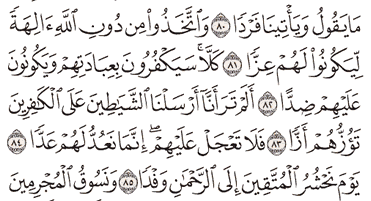 مَا يَقُولُ وَيَأْتِينَا فَرْدًا ۝٨٠ وَٱتَّخَذُوا۟ مِن دُونِ ٱللَّهِ ءَالِهَةً
لِّيَكُونُوا۟ لَهُمْ عِزًّا ۝٨١ كَلَّا ۚ سَيَكْفُرُونَ بِعِبَادَتِهِمْ وَيَكُونُونَ
عَلَيْهِمْ ضِدًّا ۝٨٢ أَلَمْ تَرَ أَنَّآ أَرْسَلْنَا ٱلشَّيَٰطِينَ عَلَى ٱلْكَٰفِرِينَ
تَؤُزُّهُمْ أَزًّا ۝٨٣ فَلَا تَعْجَلْ عَلَيْهِمْ ۖ إِنَّمَا نَعُدُّ لَهُمْ عَدًّا ۝٨٤
يَوْمَ نَحْشُرُ ٱلْمُتَّقِينَ إِلَى ٱلرَّحْمَٰنِ وَفْدًا ۝٨٥ وَنَسُوقُ ٱلْمُجْرِمِينَ